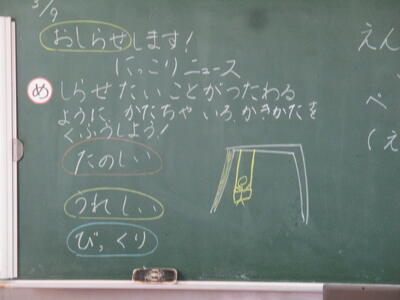 3/9
おしらせします!
にっこりニュース
め
しらせたいことがつたわる
ように、かたちや いろ、かきかたを
くふうしよう!
たのしい
うれしい
びっくり
えん
ぺ
(え